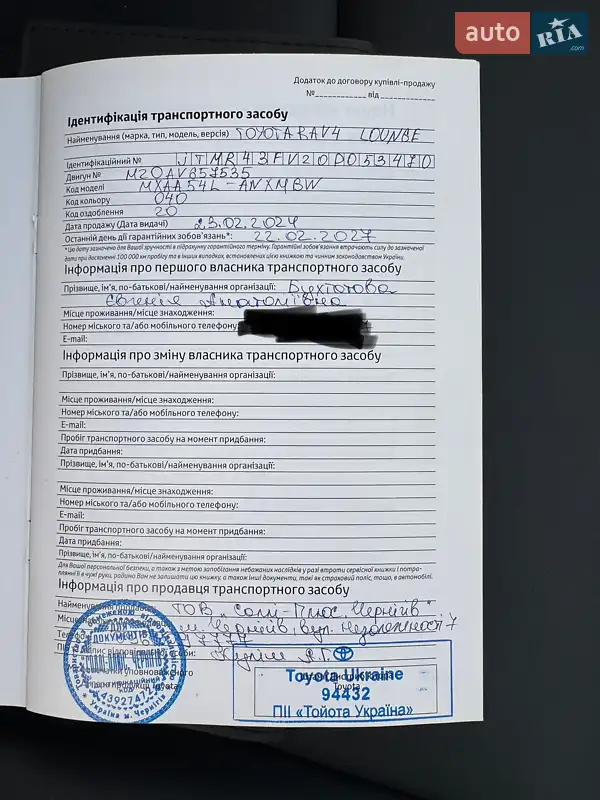 auto RIA .com
Додаток до договору купівлі-продажу
№ від
Ідентифікація транспортного засобу
Найменування (марка, тип, модель, версія) TOYOTA RAV4 LOUNGE
Ідентифікаційний № JTMR43FV20D053470
Двигун № M20AVB57535
Код моделі MXAA54L-ANXMBW
Код кольору 040
Код оздоблення 20
Дата продажу (Дата видачі) 23.02.2024
Останній день дії гарантійних зобов'язань*: 22.02.2027
*Цю дату зазначено для Вашої зручності в підрахунку гарантійного терміну. Гарантійні зобов'язання втрачають силу до зазначеної
дати при досягненні 100 000 км пробігу та в інших випадках, встановлених цією книжкою та чинним законодавством України.
Інформація про першого власника транспортного засобу
Прізвище, ім'я, по-батькові/найменування організації:
Євгенія Анатоліївна
Місце проживання/місце знаходження:
Номер міського та/або мобільного телефону:
E-mail:
Інформація про зміну власника транспортного засобу
Прізвище, ім'я, по-батькові/найменування організації:
Місце проживання/місце знаходження:
Номер міського та/або мобільного телефону:
E-mail:
Пробіг транспортного засобу на момент придбання:
Дата придбання:
Прізвище, ім'я, по-батькові/найменування організації:
Місце проживання/місце знаходження:
Номер міського та/або мобільного телефону:
E-mail:
Пробіг транспортного засобу на момент придбання:
Дата придбання:
Прізвище, ім'я, по-батькові/найменування організації:
Для Вашої персональної безпеки, а також з метою запобігання небажаних наслідків у разі втрати сервісної книжки і потра-
плянні її в чужі руки, радимо Вам не залишати цю книжку, а також інші документи, такі як страховий поліс, тощо, в автомобілі.
Інформація про продавця транспортного засобу
ТОВ "Соллі-Плюс Чернігів"
м. Чернігів, вул. Незалежності 7
ДЛЯ
ДОКУМЕНТІВ
"СОЛЛІ-ПЛЮС ЧЕРНІГІВ"
Україна м. Чернігів
Toyota Ukraine
94432
ПІІ «Тойота Україна»